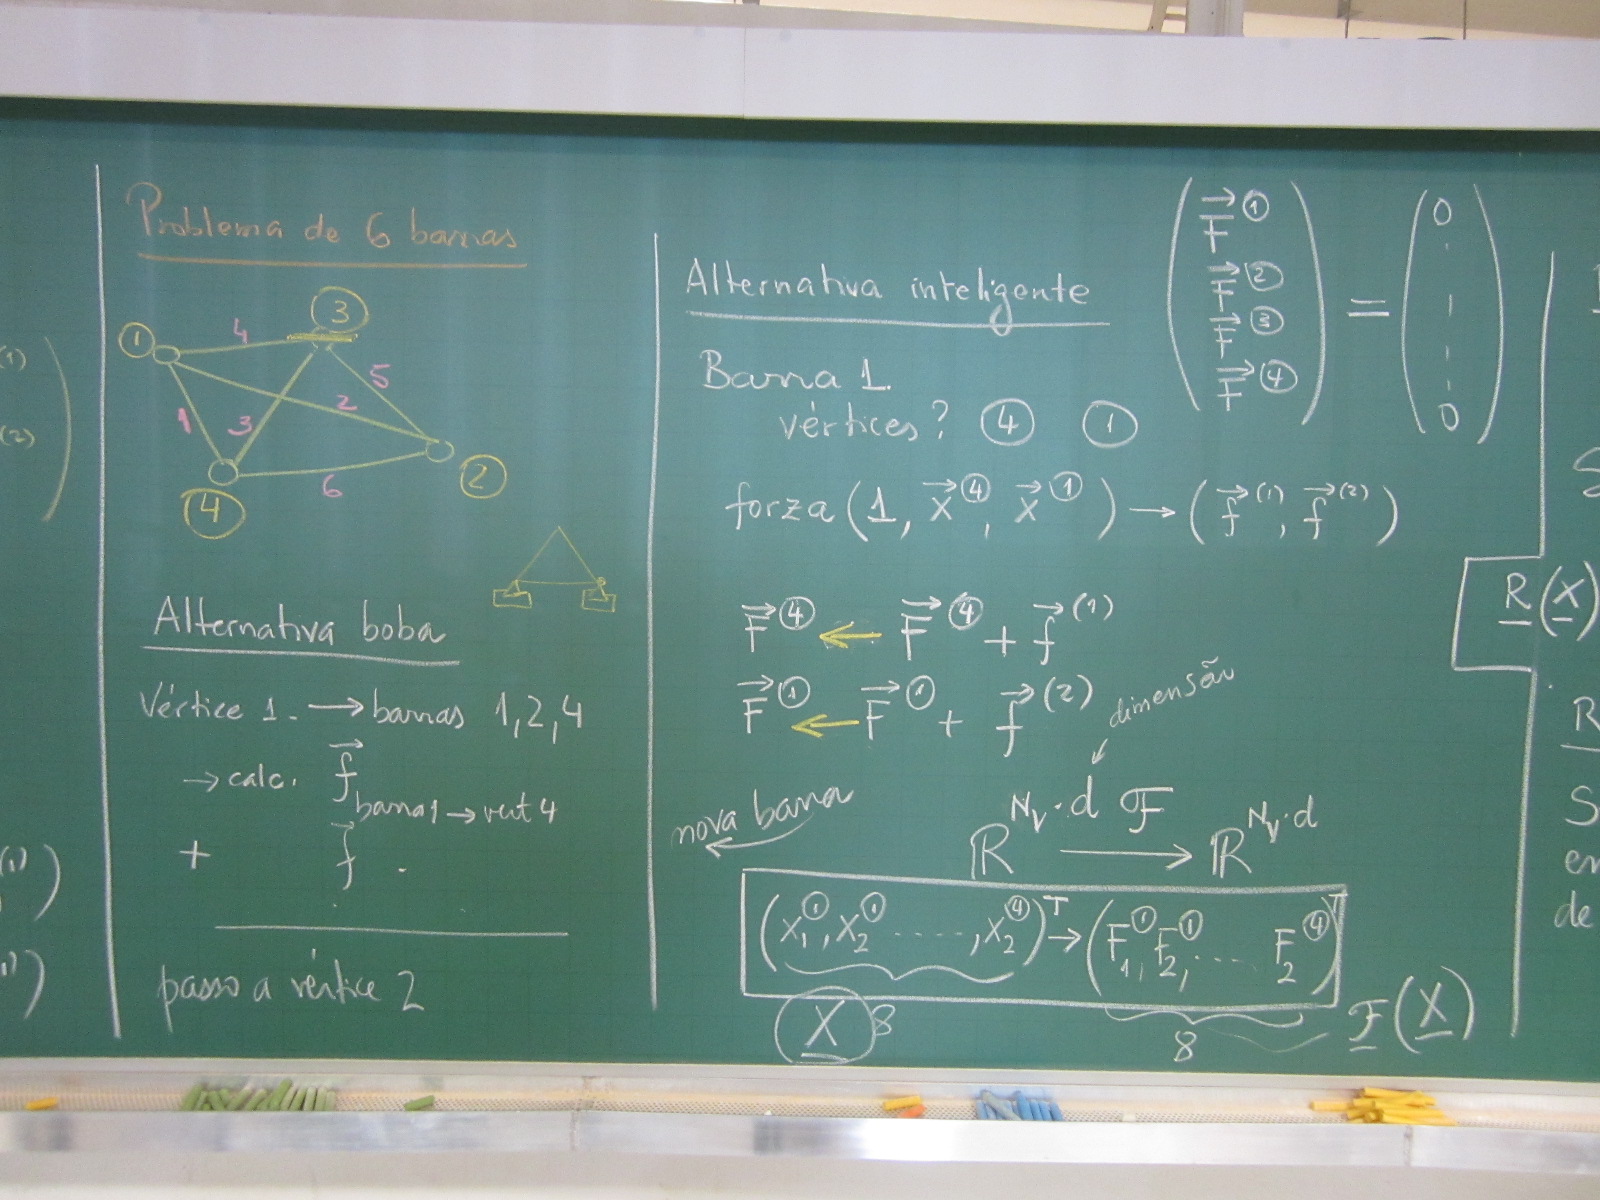 (1)
(2)
(1)
1)
Problema de 6 barras
1
3
4
5
2
1
3
6
2
4
Alternativa boba
Vértice 1. → barras 1,2,4
→ calc. f⃗ barra 1 → vert 4
+ f⃗ .
passo a vértice 2
Alternativa inteligente
(F⃗^①
F⃗^②
F⃗^③
F⃗^④) = (0
0)
Barra 1.
vértices? ④ ①
forza (1, x⃗^④, x⃗^①) → (f⃗^(1), f⃗^(2))
F⃗^④ ← F⃗^④ + f⃗^(1)
F⃗^① ← F⃗^① + f⃗^(2)
dimensão
nova barra
ℝ^{N_v·d} ℱ → ℝ^{N_v·d}
(x_1^①, x_2^① ....., x_2^④)^T → (F_1^①, F_2^①, ..... F_2^④)^T
X 8
8
F(X)
R(X)
R
S
en
de